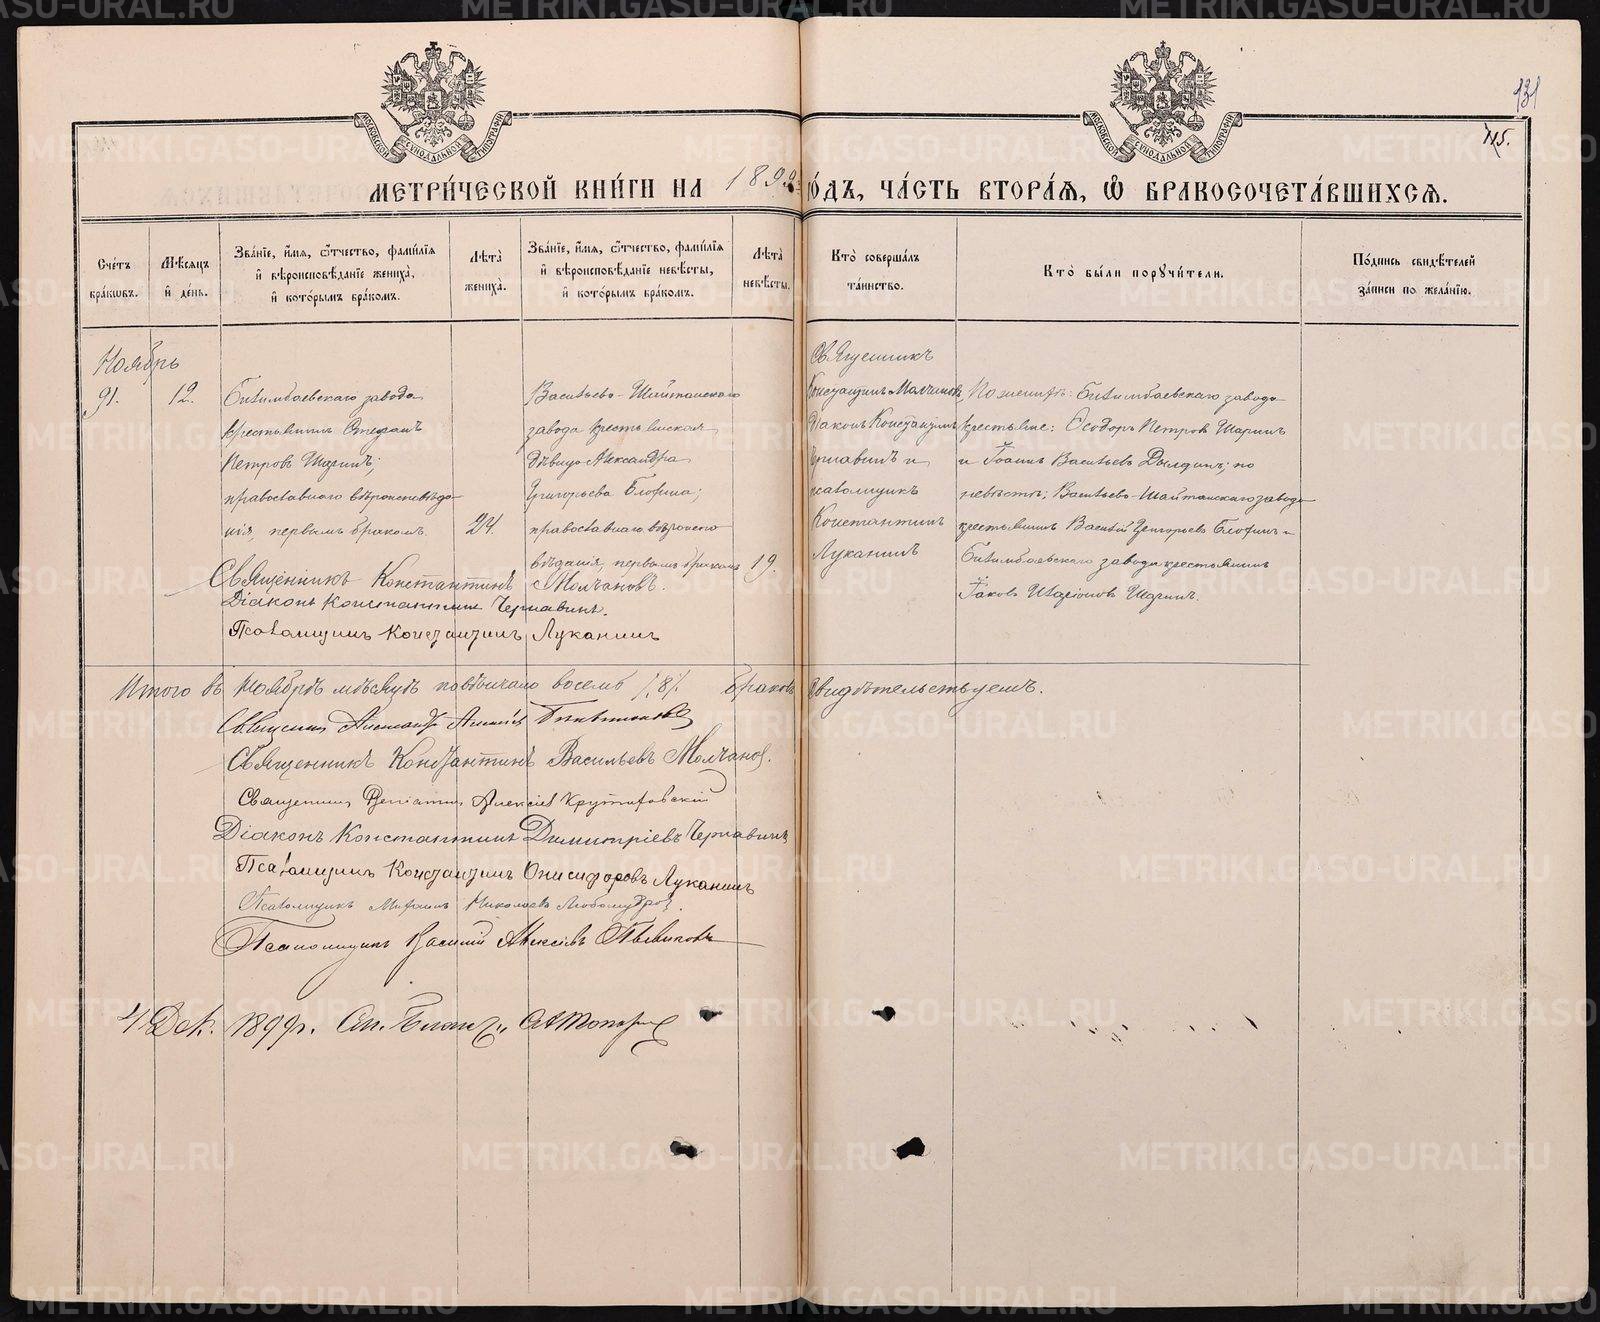 131
115.
МОСКОВСКОЙ СѴНОДАЛЬНОЙ ТИПОГРАФІИ
МОСКОВСКОЙ СѴНОДАЛЬНОЙ ТИПОГРАФІИ
МЕТРИ́ЧЕСКОЙ КНИ́ГИ НА 1899 ГО́ДЪ, ЧА́СТЬ ВТОРА́Я, Ѡ БРАКОСОЧЕТА́ВШИХСЯ.
Сче́тъ бра́кѡвъ.
Мѣ́сяцъ и҆ де́нь.
Зва́нїе, и҆́мя, ѻ҆́тчество, фами́лїя и҆ вѣроисповѣ́данїе жениха̀, и҆ кото́рымъ бра́комъ.
Лѣ́та жениха̀.
Зва́нїе, и҆́мя, ѻ҆́тчество, фами́лїя и҆ вѣроисповѣ́данїе невѣ́сты, и҆ кото́рымъ бра́комъ.
Лѣ́та невѣ́сты.
Кто̀ соверша́лъ та́инство.
Кто̀ бы́ли порꙋчи́тели.
По́дпись свидѣ́телей за́писи по жела́нїю.
Ноябрь
91.
12.
Билимбаевскаго завода
крестьянинъ Стефанъ
Петровъ
православнаго вѣроисповѣда-
нія, первымъ бракомъ.
24.
Васильево-Шайтанскаго
завода крестьянская
дѣвица Александра
Григорьева
православнаго вѣроиспо
вѣданія, первымъ бракомъ
19.
Священникъ
Константинъ Молчановъ
Діаконъ Константинъ
Чернавинъ и
псаломщикъ
Константинъ
Луканинъ
По женихѣ: Билимбаевскаго завода
крестьяне: Ѳеодоръ Петровъ
и Іоаннъ Васильевъ Дылдинъ; по
невѣстѣ: Васильево-Шайтанскаго завода
крестьянинъ Василій Григорьевъ и
Билимбаевскаго завода крестьянинъ
Іаковъ
Священникъ Константинъ Молчановъ.
Діаконъ Константинъ Чернавинъ.
Псаломщикъ Константинъ Луканинъ
Итого въ Ноябрѣ мѣсяцѣ повѣнчано восемь /8/. браковъ свидѣтельствуемъ.
Священникъ Александръ Алексѣевъ
Священникъ Константинъ Васильевъ Молчановъ.
Священникъ Веніаминъ Алексіевъ
Діаконъ Константинъ Димитріевъ Чернавинъ
Псаломщикъ Константинъ Онисифоровъ Луканинъ
Псаломщикъ Михаилъ Николаевъ Любомудровъ.
Псаломщикъ Василій Алексѣевъ
4 Дек. 1899 г.
METRIKI.GASO-URAL.RU